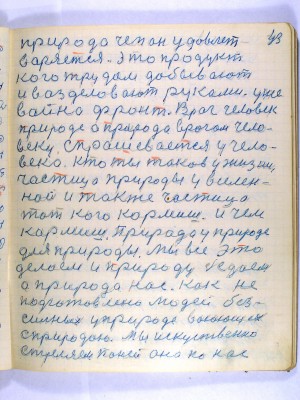 природа чем он удовлет- 43
варяется. Это продукт
кого трудом добывают
и вазделовают руками. уже
вайна фронт. Враг человек
природе а природа врагом чело-
веку. Страшевается у чело-
века. Кто ты таков у жизни,
частица природы у вселен-
ной и также частица
тот кого кармиш. и чем
кармиш. Природу у природе
для природы. Мы все это
делаем и природу едаем
а природа нас. Как не
подготовлено людей без-
сильных у природе воюющих
сприродою. Мы искуственно
стреляем поней она по нас